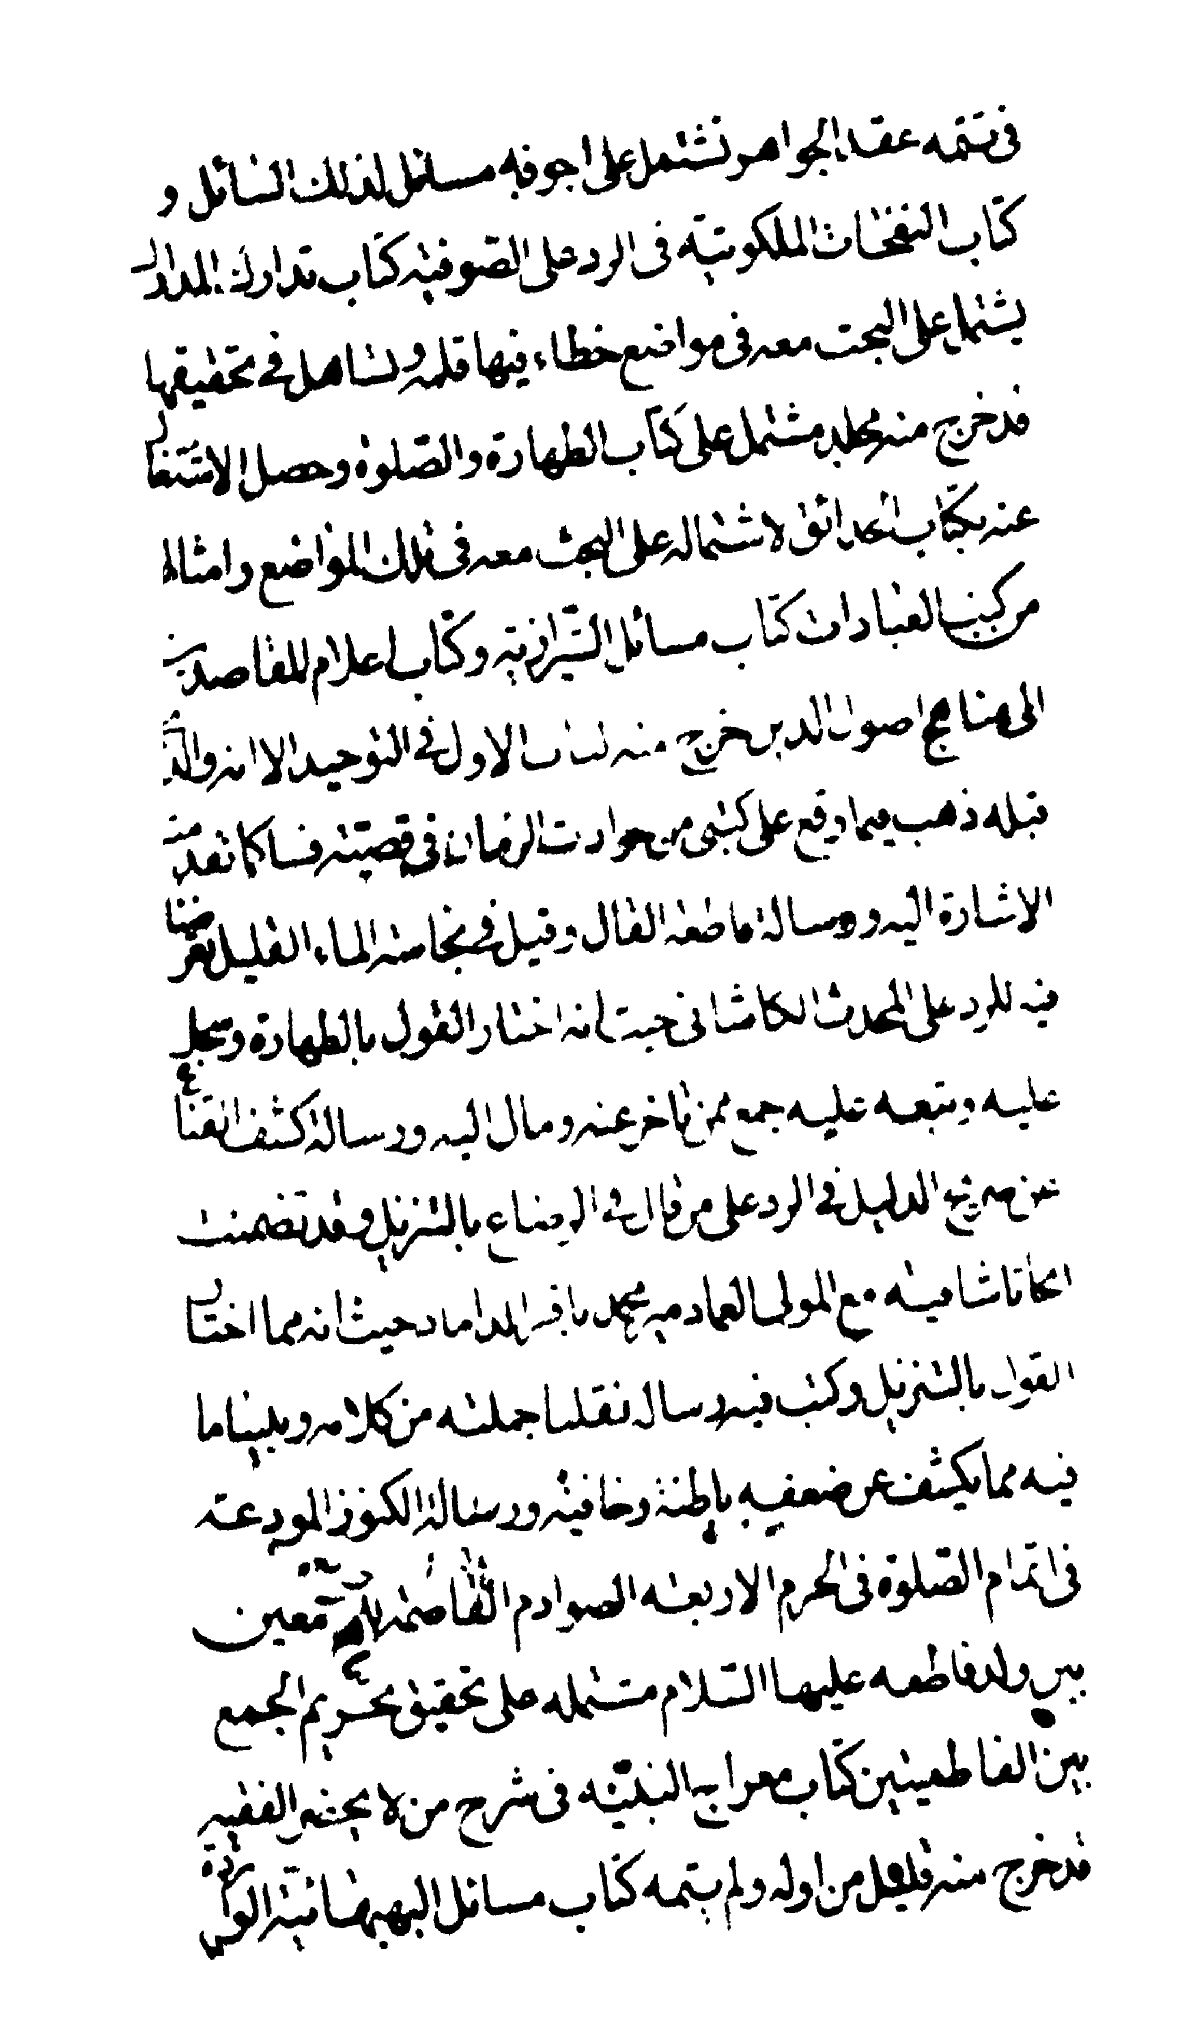 في تتمه عقد الجواهر تشتمل على اجوبه مسائل لذلك السائل و
كتاب النفحات الملكوتيه فى الرد على الصوفيه كتاب تدارك المدارك
يشتمل على البحث معه فى مواضع خطاء فيها قلمه وتساهل في تحقيقها
قد خرج منه مجلد مشتمل على كتاب الطهارة والصلوة وحصل الاستغنا
عنه بكتاب الحدائق لاشتماله على البحث معه فى تلك المواضع وامثالها
من كتب العبادات كتاب مسائل الشيرازيه وكتاب اعلام القاصدين
الى مناهج اصول الدين خرج منه الباب الاول في التوحيد الا انه والذى
قبله ذهب فيما وقع على كتبى من حوادث الزمان فى قصبته فسا كما تقدمت
الاشارة اليه ورسالة قاطعه القال وقيل في نجاسه الماء القليل تعرضنا
فيه للرد على المحدث الكاشانى حيث انه اختار القول بالطهارة وسجل
عليه وتبعه عليه جمع ممن تاخر عنه ومال اليه ورسالة كشف القناع
عن صريح الدليل في الرد على من قال في الرضاع بالتنزيل وقد تضمنت
ابحاثا شافيه مع المولى العماد مير محمد باقر الداماد حيث انه مما اختار
القول بالتنزيل وكتب فيه رساله نقلنا جملته من كلامه وبينا ما
فيه مما يكشف عن ضعف باطنة وخافيه ورسالة الكنوز المودعه
فى اتمام الصلوة فى الحرم الاربعه الصوارم القاصمه للجامعين
بين ولد فاطمه عليها السلام مشتمله على تحقيق تحريم الجمع
بين الفاطميتين كتاب معراج النبيه فى شرح من لا يحضره الفقيه
قد خرج منه قليل من اوله ولم يتمه كتاب مسائل البهبهانيه الواردة